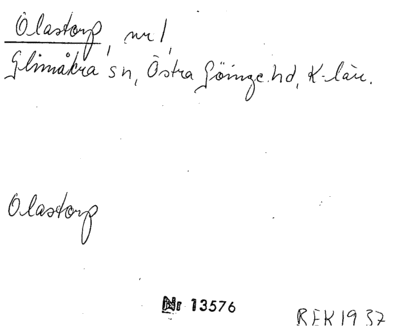 Ölastorp, nr 1,
Glimåkra sn, Östra Göinge hd, K-län.
Olastorp
Nr 13576
REK 1937